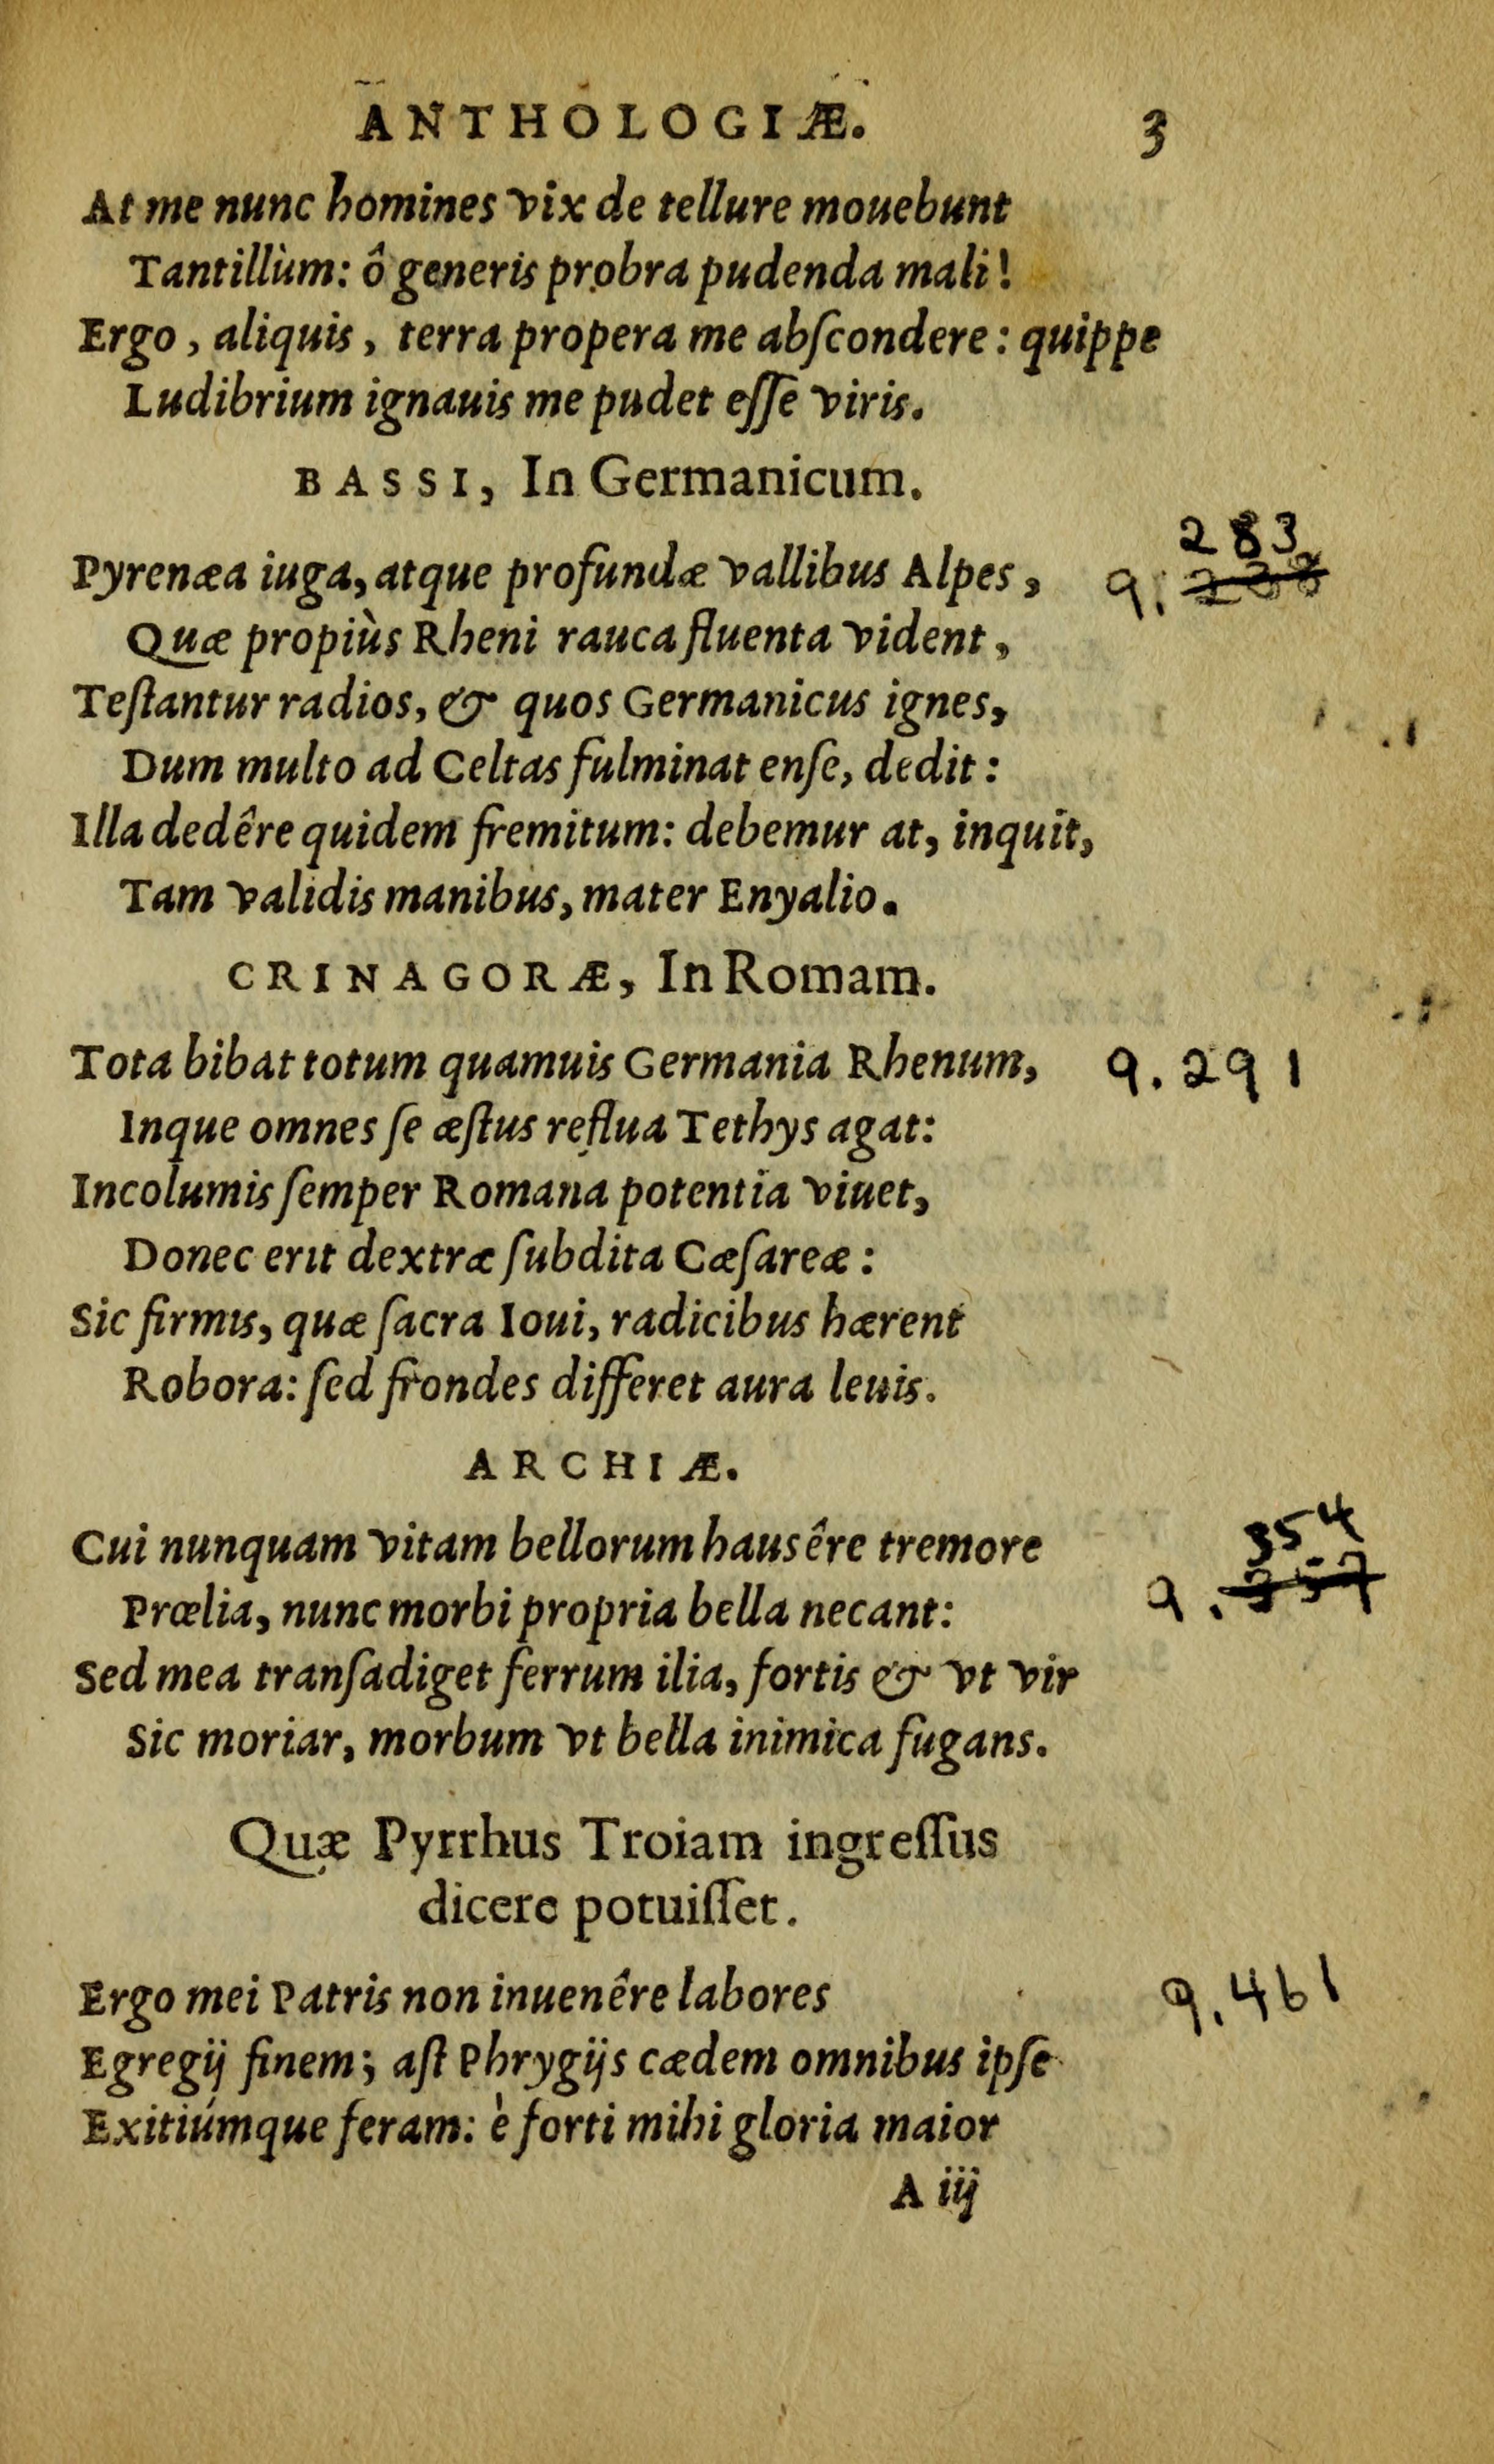 ANTHOLOGIÆ. 3
At me nunc homines vix de tellure mouebunt
Tantillùm: ô generis probra pudenda mali!
Ergo, aliquis, terra propera me abſcondere: quippe
Ludibrium ignauis me pudet eſſe viris.
BASSI, In Germanicum.
283
Pyrenæa iuga, atque profundæ vallibus Alpes, 9.
Quæ propiùs Rheni rauca fluenta vident,
Teſtantur radios, & quos Germanicus ignes,
Dum multo ad Celtas fulminat enſe, dedit:
Illa dedêre quidem fremitum: debemur at, inquit,
Tam validis manibus, mater Enyalio.
CRINAGORÆ, In Romam.
Tota bibat totum quamuis Germania Rhenum, 9.291
Inque omnes ſe æſtus reflua Tethys agat:
Incolumis ſemper Romana potentia viuet,
Donec erit dextræ ſubdita Cæſareæ:
Sic firmis, quæ ſacra Ioui, radicibus hærent
Robora: ſed frondes differet aura leuis.
ARCHIÆ.
354
Cui nunquam vitam bellorum hausêre tremore
Prœlia, nunc morbi propria bella necant: 9.357
Sed mea tranſadiget ferrum ilia, fortis & vt vir
Sic moriar, morbum vt bella inimica fugans.
Quæ Pyrrhus Troiam ingreſſus
dicere potuiſſet.
Ergo mei Patris non inuenêre labores 9.461
Egregij finem; aſt Phrygijs cædem omnibus ipſe
Exitiúmque feram: è forti mihi gloria maior
A iij